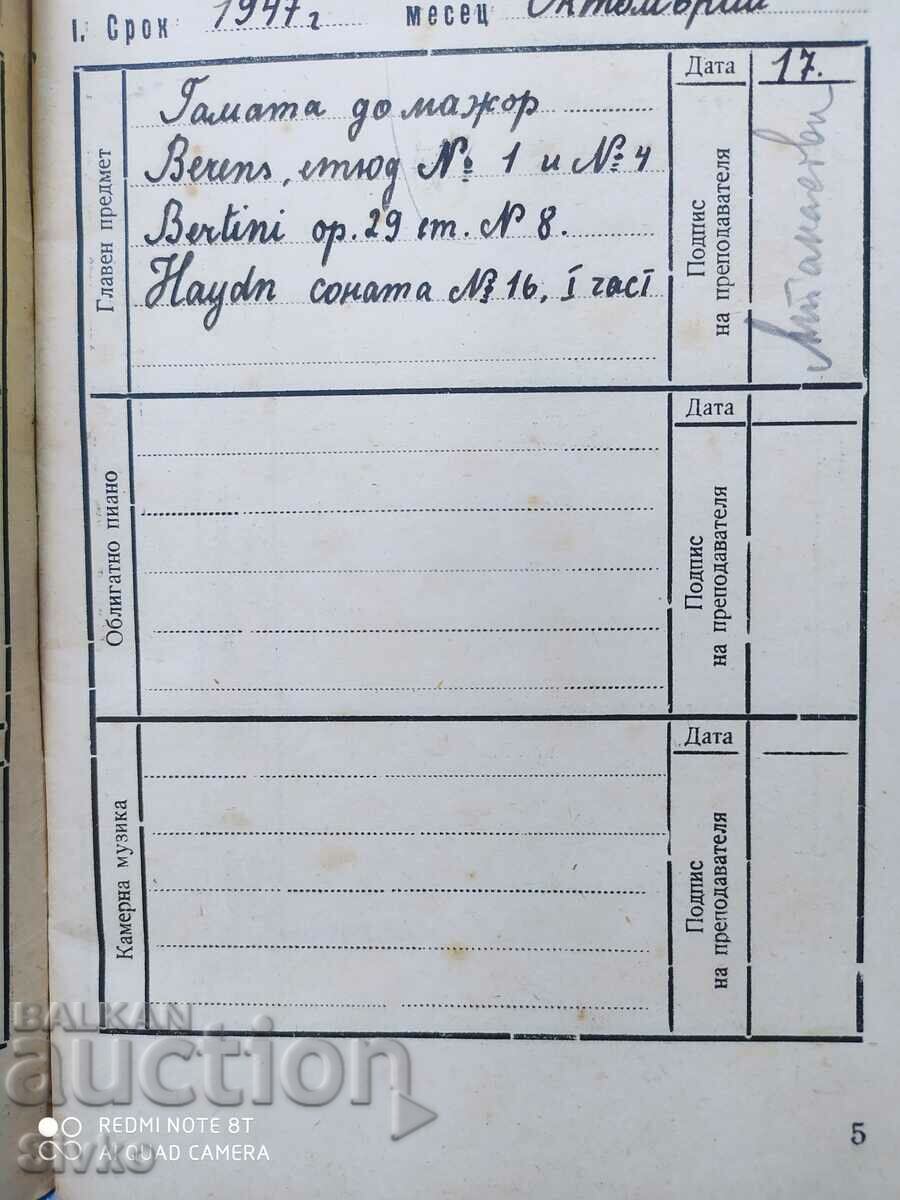 I. Срок 1947 г месец Октомврий
Главен предмет
Гамата до мажор
Berens, етюд № 1 и № 4
Bertini op. 29 ет. N 8.
Haydn соната № 16, I част
Дата 17.
Подпис
на преподавателя
Облигатно пиано
Дата
Подпис
на преподавателя
Камерна музика
Дата
Подпис
на преподавателя
5
BALKAN
auction
REDMI NOTE 8T
AI QUAD CAMERA
Sivko